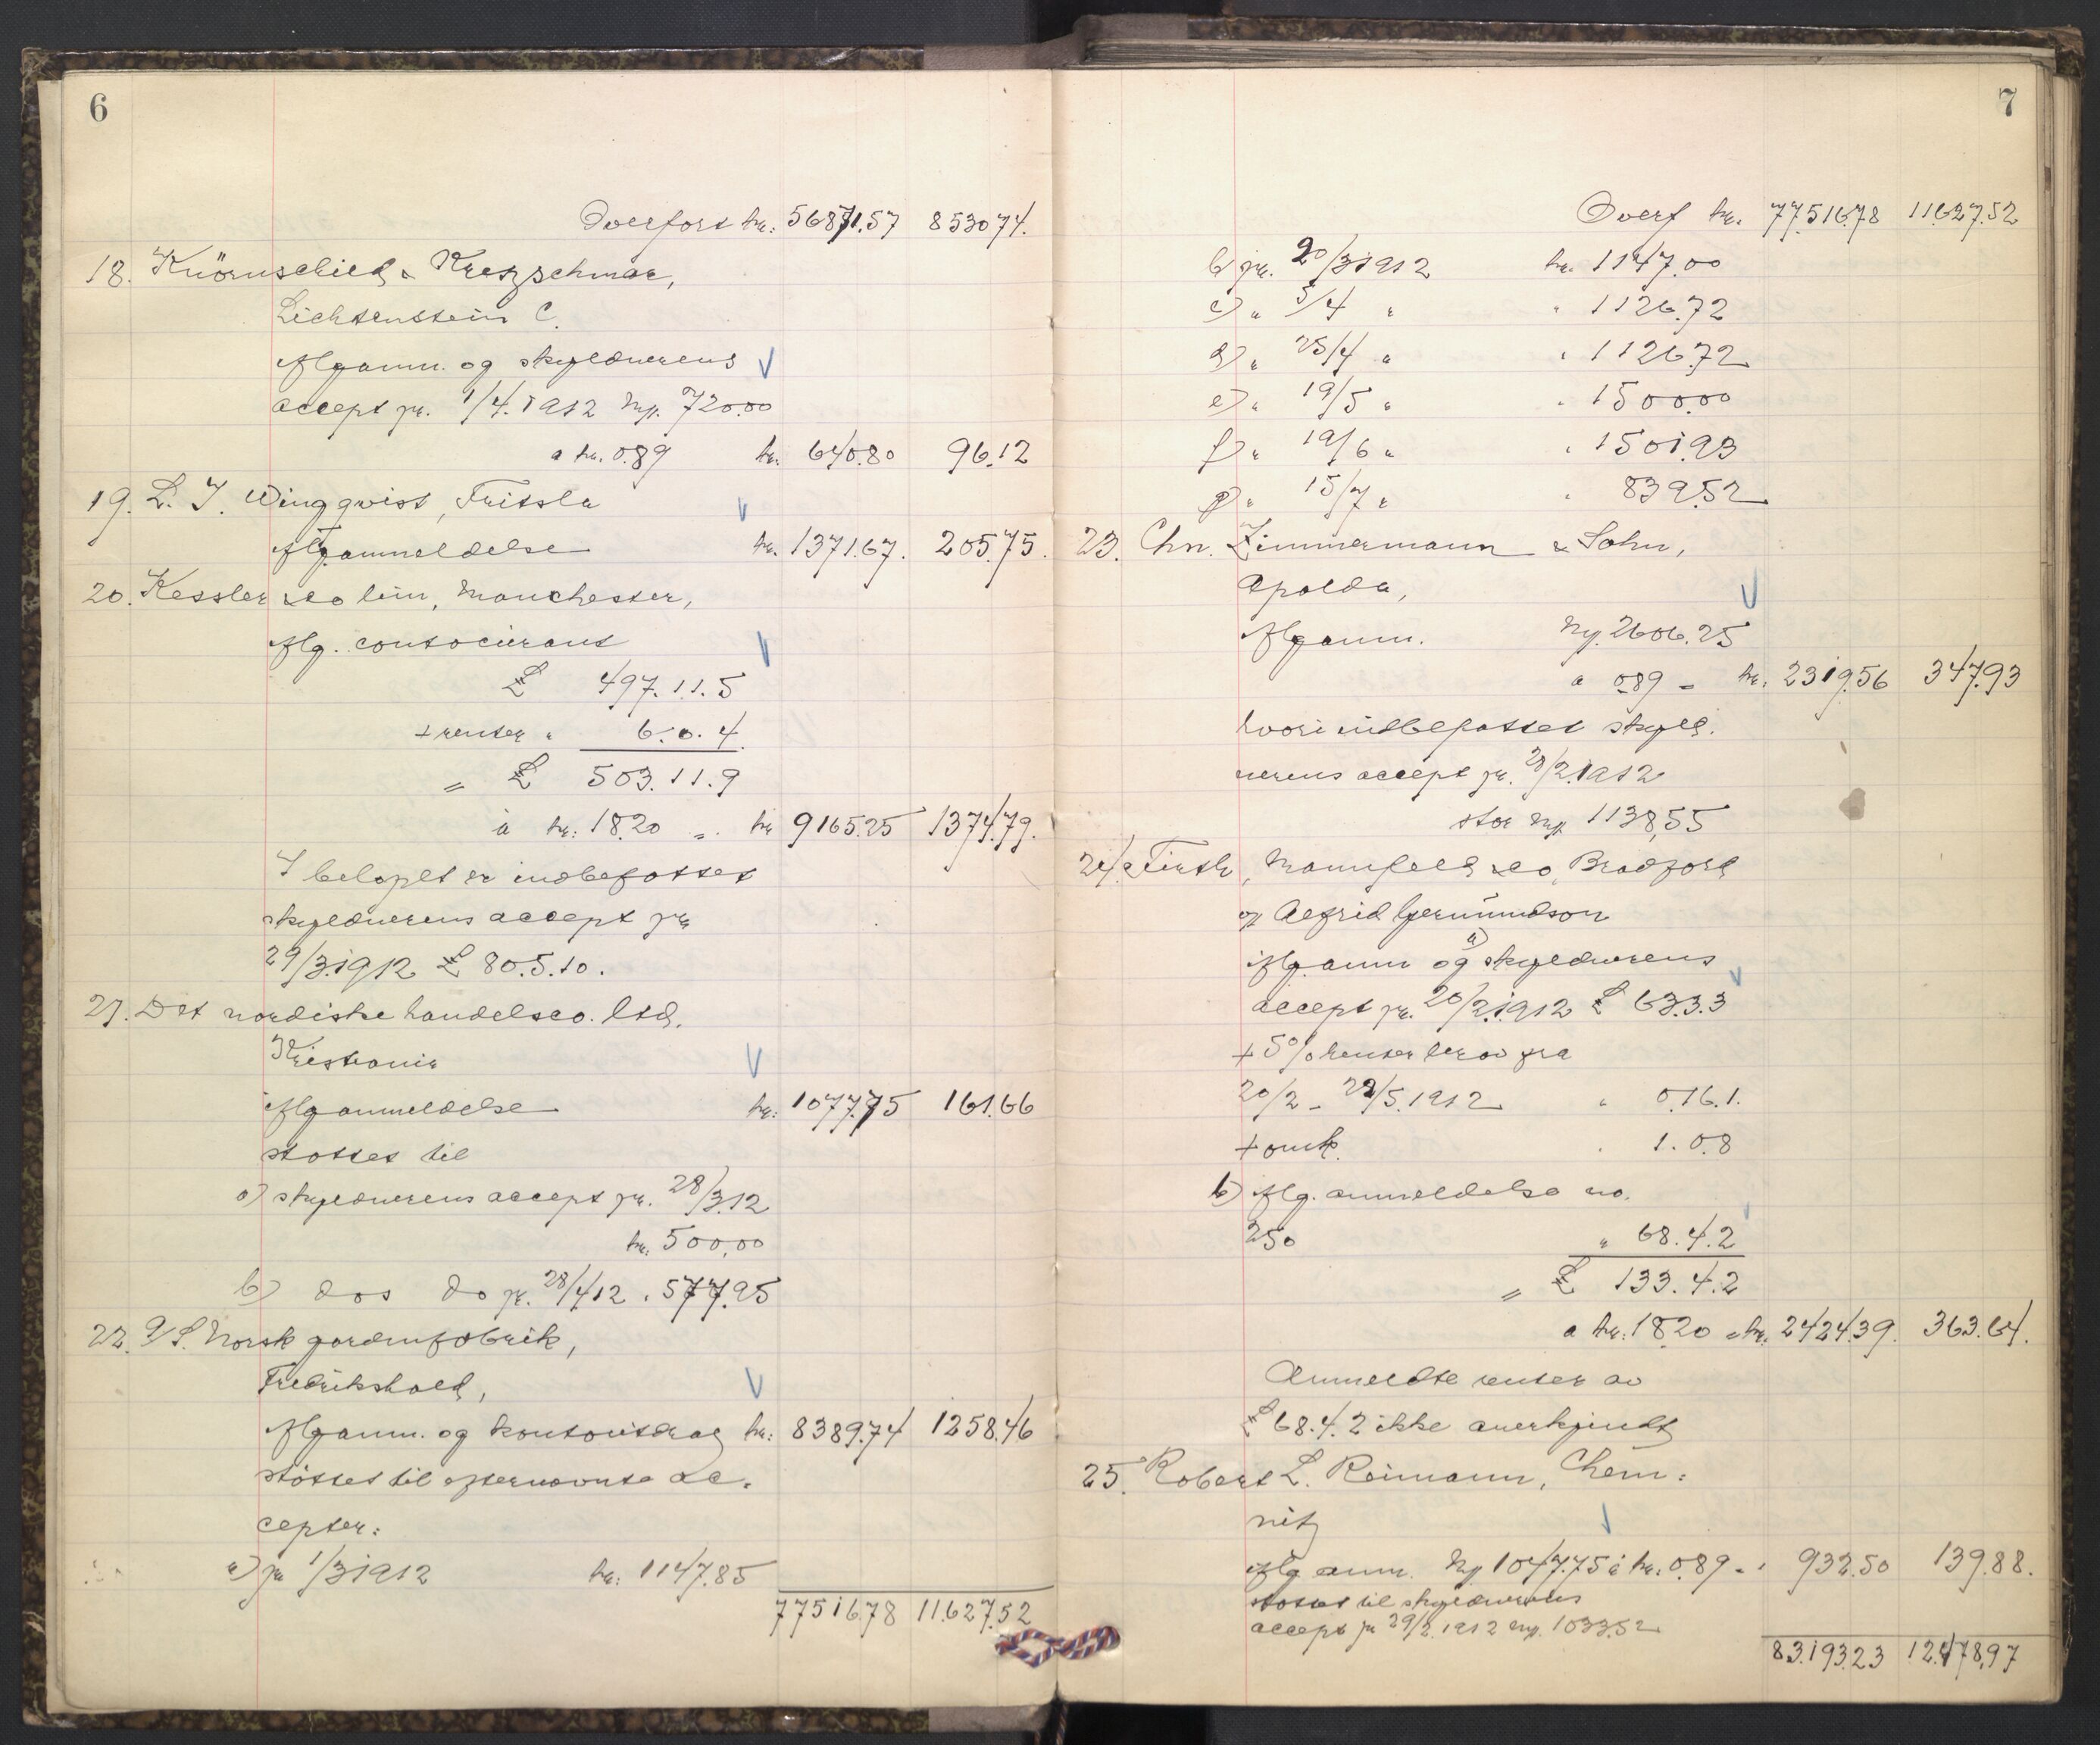 6
Overført kr. 56871.57 8530.74.
18. Knörnschild & Kretzschmar,
Lichtenstein C.
iflg anm. og skyldnerens
accept pr. 1/4.1912 Mk. 720.00
a kr. 0.89 kr. 640.80 96.12
19. L. J. Wingqvist, Fritsla
iflg anmeldelse kr. 1371.67. 205.75.
20. Kessler & Co lim, Manchester,
iflg. contocurant
£ 497.11.5
+ renter " 6.0.4
= £ 503.11.9
à kr. 18.20 = kr 9165.25 1374.79.
I beløpet er indbefattet
skyldnerens accept pr
29/3.1912 £ 80.5.10.
21. Det nordiske handelsco. ltd.
Kristiania
iflg anmeldelse kr. 1077.75 161.66
støttet til
a) skyldnerens accept pr. 28/3.12
kr. 500,00
b) dos do pr. 28/4 12 " 577.95
22. A/S. Norsk gardinfabrik,
Fredrikshald,
iflg anm. og kontoutdrag kr. 8389.74 1258.46
støttet til efternævnte ac-
cepter:
a) pr 1/3 1912 kr. 1147.85
77516.78 11.627.52
7
Overf kr. 77.516.78 11.627.52
b) pr. 20/3 1912 kr. 1147.00
c) " 5/4 " " 1126.72
d) " 25/4 " " 1126.72
e) " 19/5 " " 1500.00
f) " 19/6 " " 1501.93
g) " 15/7 " " 839.52
23. Chr. Zimmermann & Sohn,
Apolda,
iflg anm. Mk. 2606.25
a 0.89 = kr. 2319.56 347.93
hvori indbefattet skyld-
nerens accept pr. 28/2.1912
stor Mk 1138,55
24. Firth, Mannfeld & Co, Bradford
v/ Alfrid Gjermundson
iflg. anm og a) skyldnerens
accept pr. 20/2.1912 £ 63.3.3
+ 5% renter herav fra
20/2 - 22/5.1912 " 0.16.1.
+ omk. " 1.0.8
b) iflg. anmeldelse no.
250 " 68.4.2
= £ 133.4.2
a kr. 18.20 = kr. 2424.39. 363.64.
Anmeldte renter av
£ 68.4.2 ikke anerkjendt
25. Robert L. Reimann, Chem-
nitz
iflg anm. Mk 1047.75 à kr. 0.89 = " 932.50 139.88.
støttet til skyldnerens
accept pr 29/2.1912 Mk. 1033.52
83.193.23 12.478,97